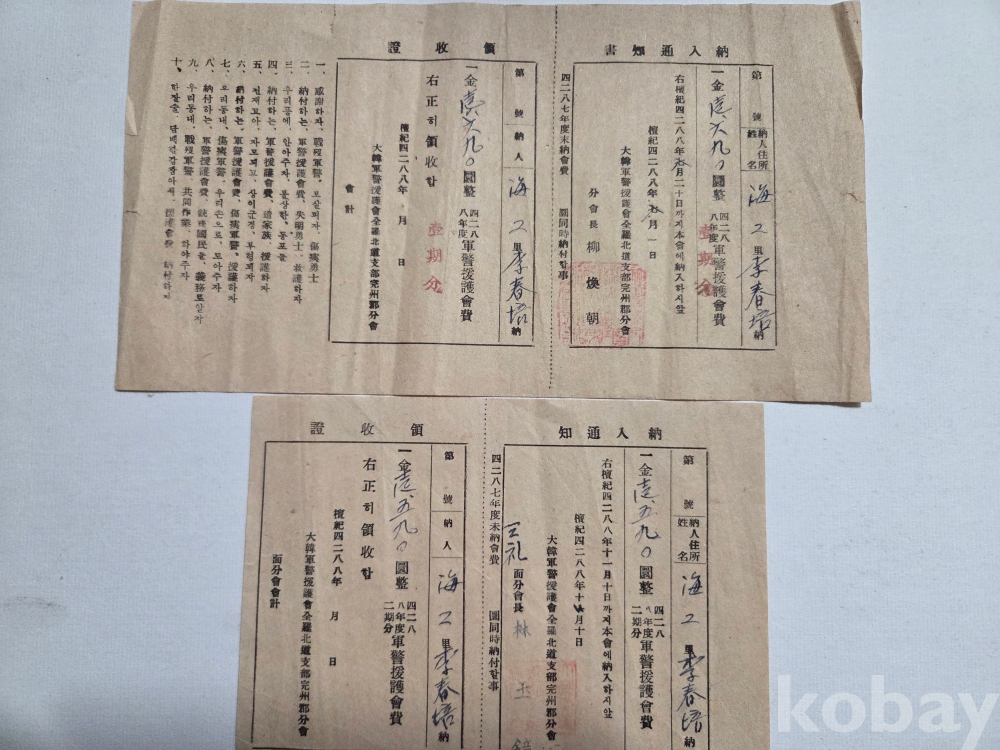 納入通知書
第 號 納人住所姓名 海 2 里 李春培 納
一金壹、六九〇圓整 四二八八年度 軍警援護會費
壹期分
右檀紀四二八八年 月二十日까지本會에納入하시압
檀紀四二八八年 月一日
大韓軍警援護會全羅北道支部完州郡分會
分會長 柳煥朝
四二八七年度未納會費 圜同時納付할事
領收證
第 號 納人 海 2 里 李春培 納
一金壹、六九〇圓整 四二八八年度 軍警援護會費
壹期分
右正히領收함
檀紀四二八八年 月 日
大韓軍警援護會全羅北道支部完州郡分會
會計
一、感謝하자、戰歿軍警、보살피자、傷痍勇士
二、納付하는、軍警援護會費、失明勇士、救護하자
三、우리품에、안아주자、불상한、동포들
四、納付하는、軍警援護會費、遺家族、援護하자
五、 자、상이군경、부럽 자
六、納付하는、軍警援護會費、傷痍軍警、援護하자
七、우리동내、傷痍軍警、우리손으로、도아주자
八、納付하는、軍警援護會費、銃後國民들、義務로알자
九、우리동내、戰歿軍警、共同作業、하야주자
十、한잔술、담배한갑참아서、援護會費、納付하자
納入通知
第 號 納人住所姓名 海 2 里 李春培 納
一金壹、五九〇圓整 四二八八年度二期分 軍警援護會費
右檀紀四二八八年十一月十日까지本會에納入하시압
檀紀四二八八年十 月十日
大韓軍警援護會全羅北道支部完州郡分會
面分會長 林
四二八七年度未納會費 圜同時納付할事
領收證
第 號 納人 海 2 里 李春培 納
一金壹、五九〇圓整 四二八八年度二期分 軍警援護會費
右正히領收함
檀紀四二八八年 月 日
大韓軍警援護會全羅北道支部完州郡分會
面分會會計
kobay